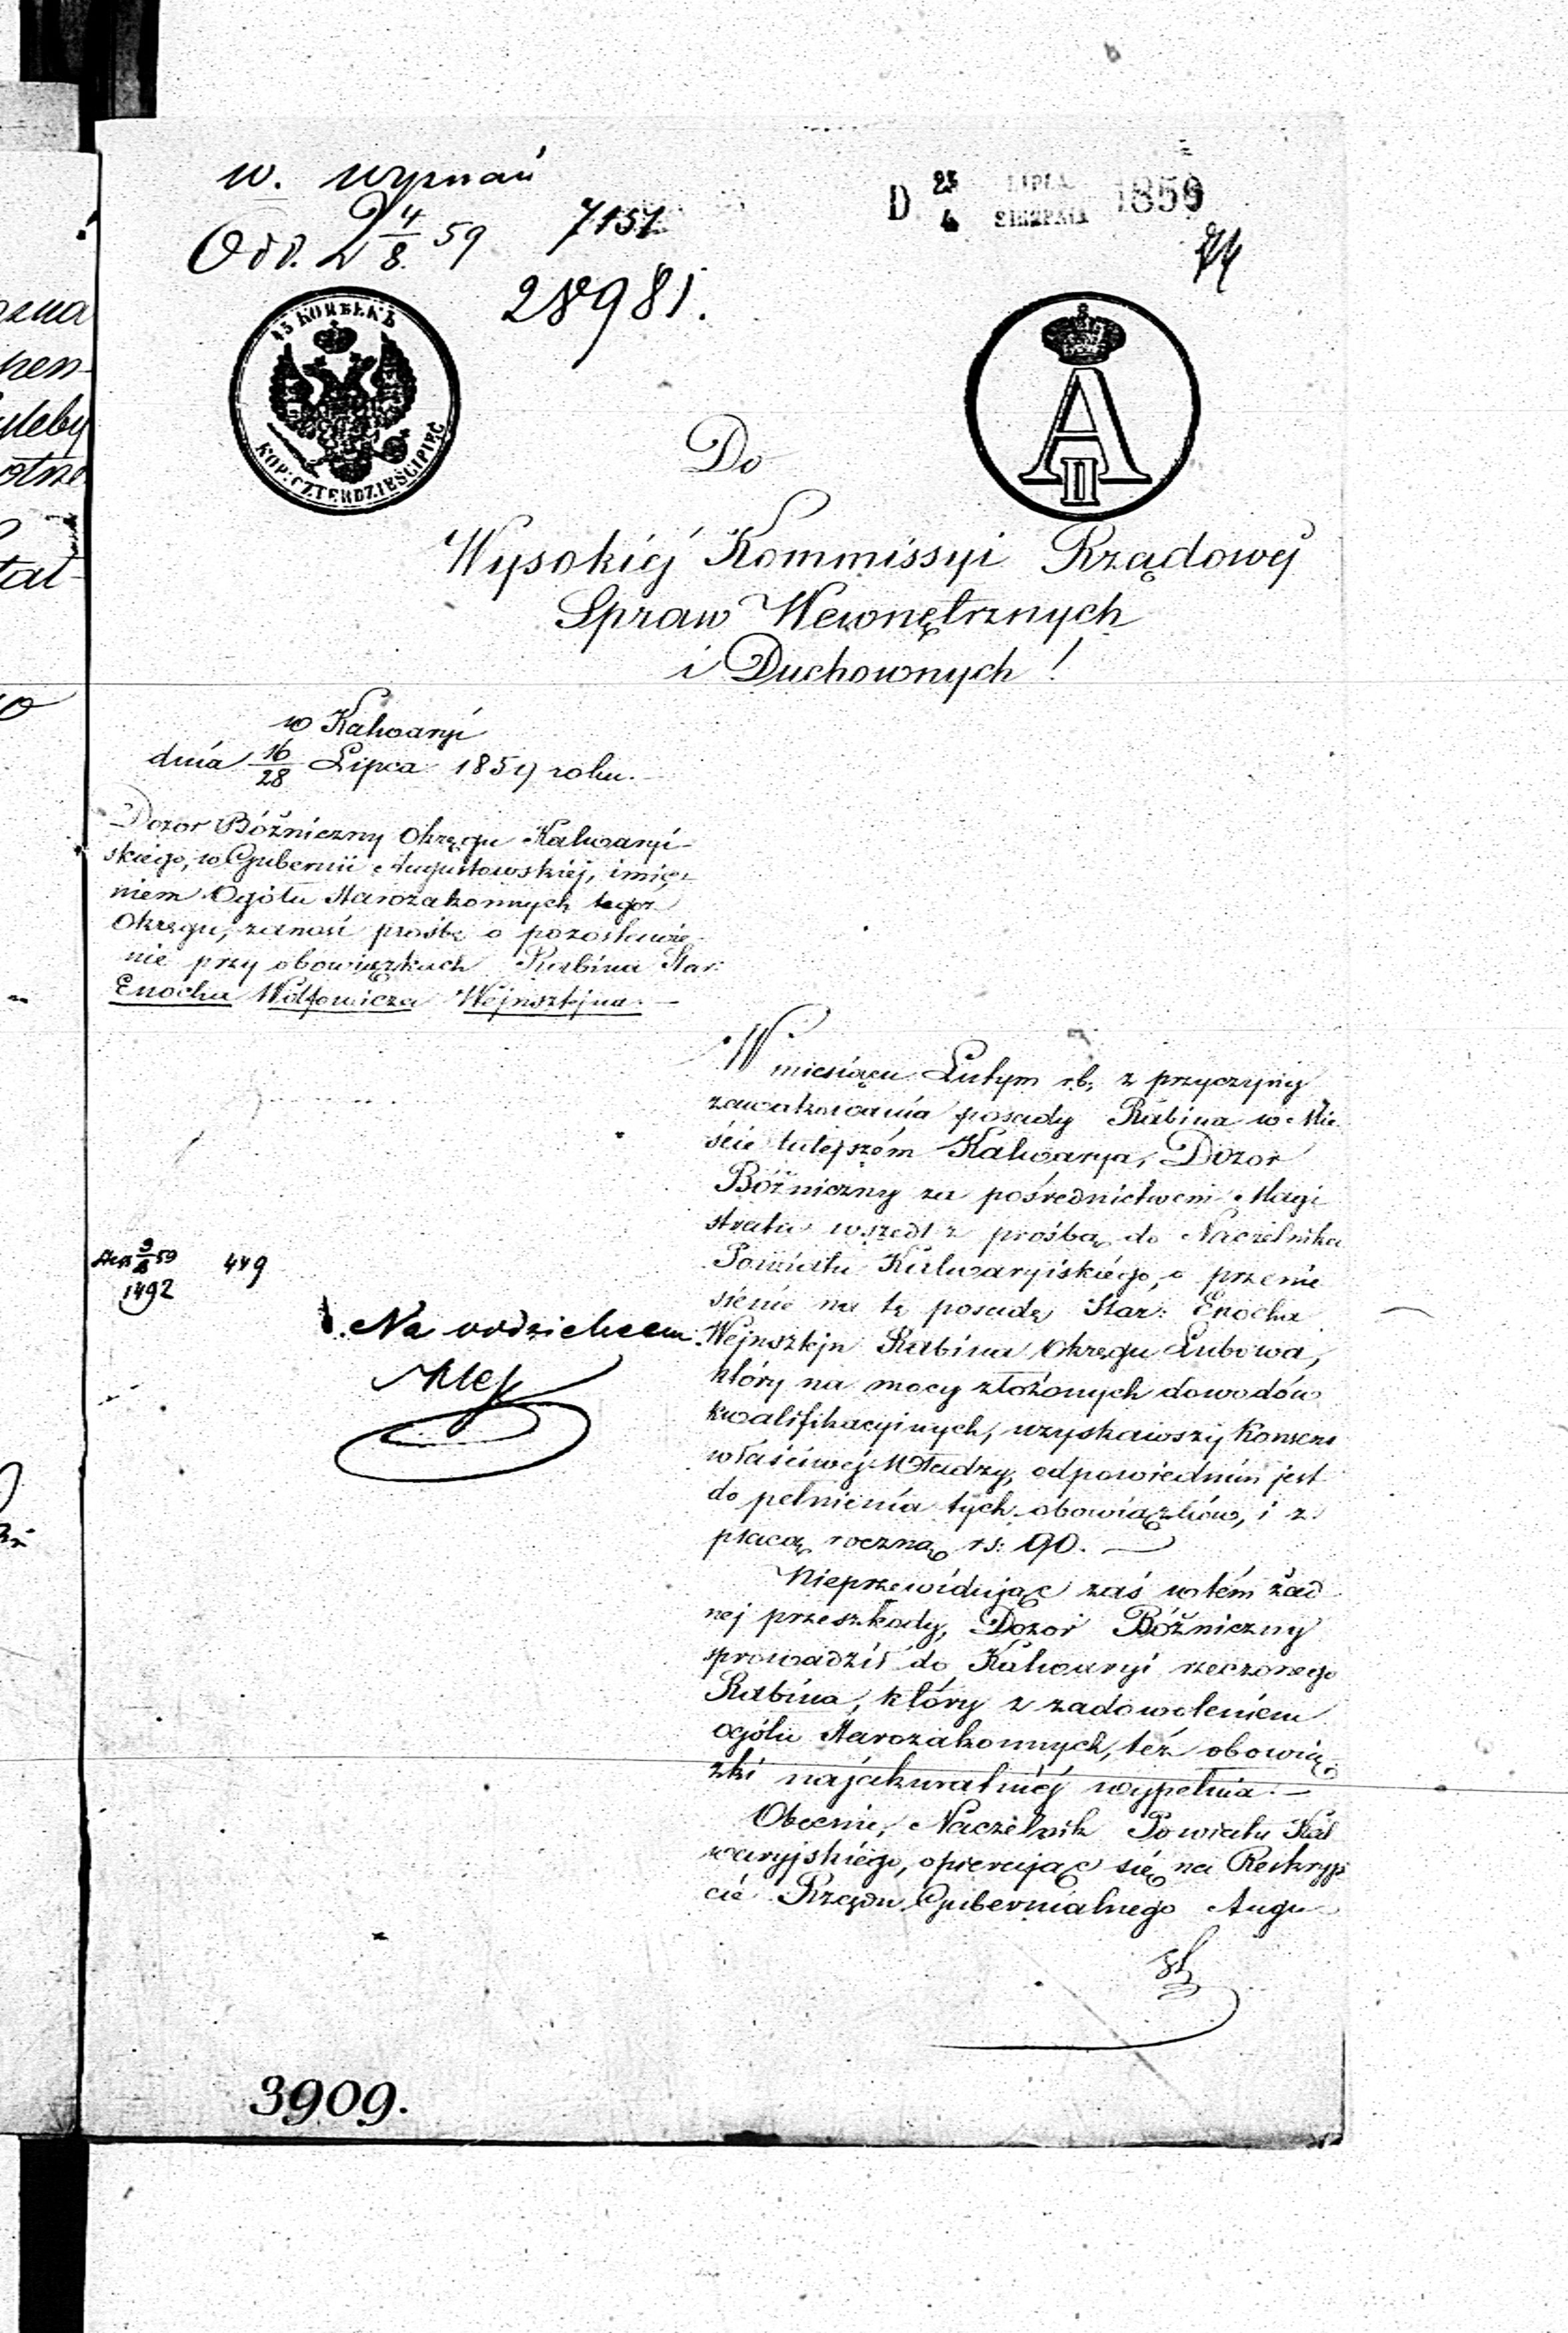 w. wyznań
Odd. 2 4/8 59
7151
28981.
D 23 LIPCA 1859
4 SIERPNIA
45 КОПѢЕКЪ
KOP: CZTERDZIEŚCI PIĘĆ
A II
Do
Wysokiéj Kommissyi Rządowéj
Spraw Wewnętrznych
i Duchownych!
w Kalwaryi
dnia 16/28 Lipca 1859 roku.
Dozór Bóżniczny Okręgu Kalwaryi-
skiego, w Gubernii Augustowskiéj, imie-
niem Ogółu Starozakonnych tegoż
Okręgu, zanosi prośbę o pozostawie-
nie przy obowiązkach Rabina Star:
Enocha Wolfowicza Wejnsztejna. —
W miesiącu Lutym r.b. z przyczyny
zawakowania posady Rabina w Mie-
ście tutejszém Kalwarya, Dozór
Bóżniczny za pośrednictwem Magi
stratu wszedł z prośbą do Naczelnika
Powiatu Kalwaryiskiego, o przenie
sienie na tę posadę Star: Enocha
Wejnsztejn Rabina Okręgu Lubowa,
który na mocy złożonych dowodów
kwalifikacyinych, uzyskawszy Konsens
właściwéj Władzy, odpowiednim jest
do pełnienia tych obowiązków, i z
płacą roczną rs: 90. —
Nieprzewidując zaś w tém żad
néj przeszkody, Dozór Bóżniczny
sprowadził do Kalwaryi rzeczonego
Rabina, który z zadowoleniem
ogółu Starozakonnych, też obowią-
zki najakuratniéj wypełnia. —
Obecnie, Naczelnik Powiatu Kal
waryjskiego, opierając się na Reskryp
cie Rządu Gubernialnego Augu
9/8 59
1492
449
Na
3909.